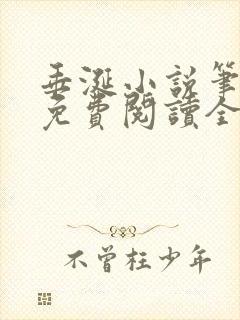 垂涎小說筆
免費閱讀全
不曾枉少年